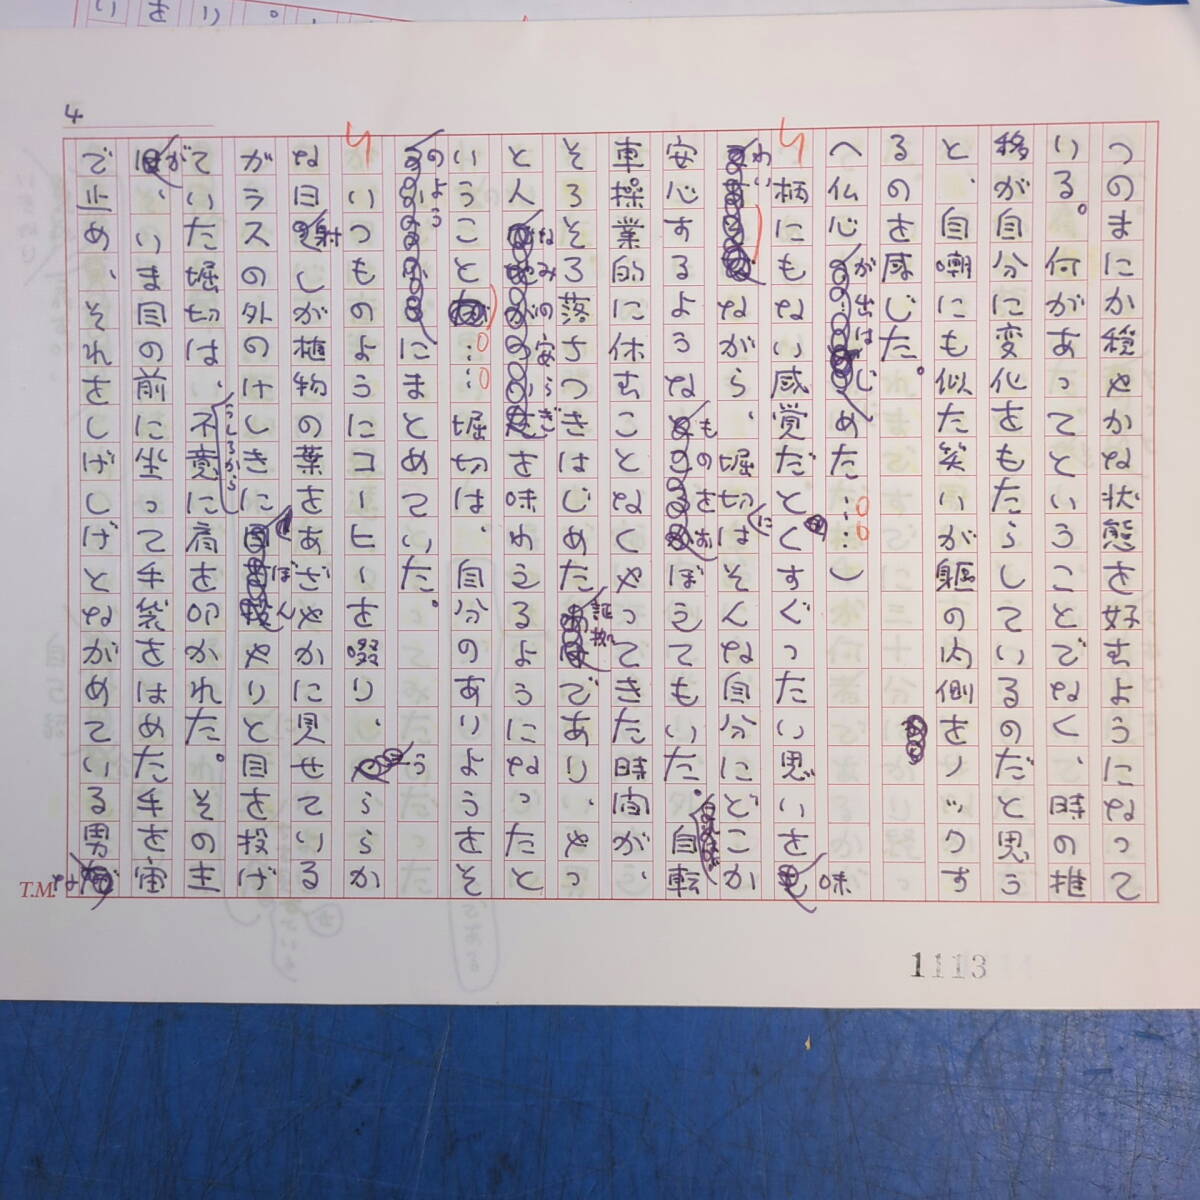 4
つのまにか穏やかな状態を好むようになって
いる。何があってということでなく、時の推
移が自分に変化をもたらしているのだと思う
と、自嘲にも似た笑いが躯の内側をノックす
るのを感じた。
へ仏心が出はじめた……し
柄にもない感覚だとくすぐったい思いを味
わいながら、堀切はそんな自分にどこか
安心するようなものをおぼえてもいた。自転
車操業的に休むことなくやってきた時間が、
そろそろ落ちつきはじめた証拠であり、やっ
と人なみの安らぎを味わえるようになったと
いうこと……堀切は、自分のありようをそ
のようにまとめていた。
いつものようにコーヒーを啜り、うららか
な日射しが植物の葉をあざやかに見せている
ガラスの外のけしきにぼんやりと目を投げ
ていた堀切は、不意にうしろから肩を叩かれた。その主
が、いま目の前に坐って手袋をはめた手を宙
で止め、それをしげしげとながめている男な
T.M.
1113